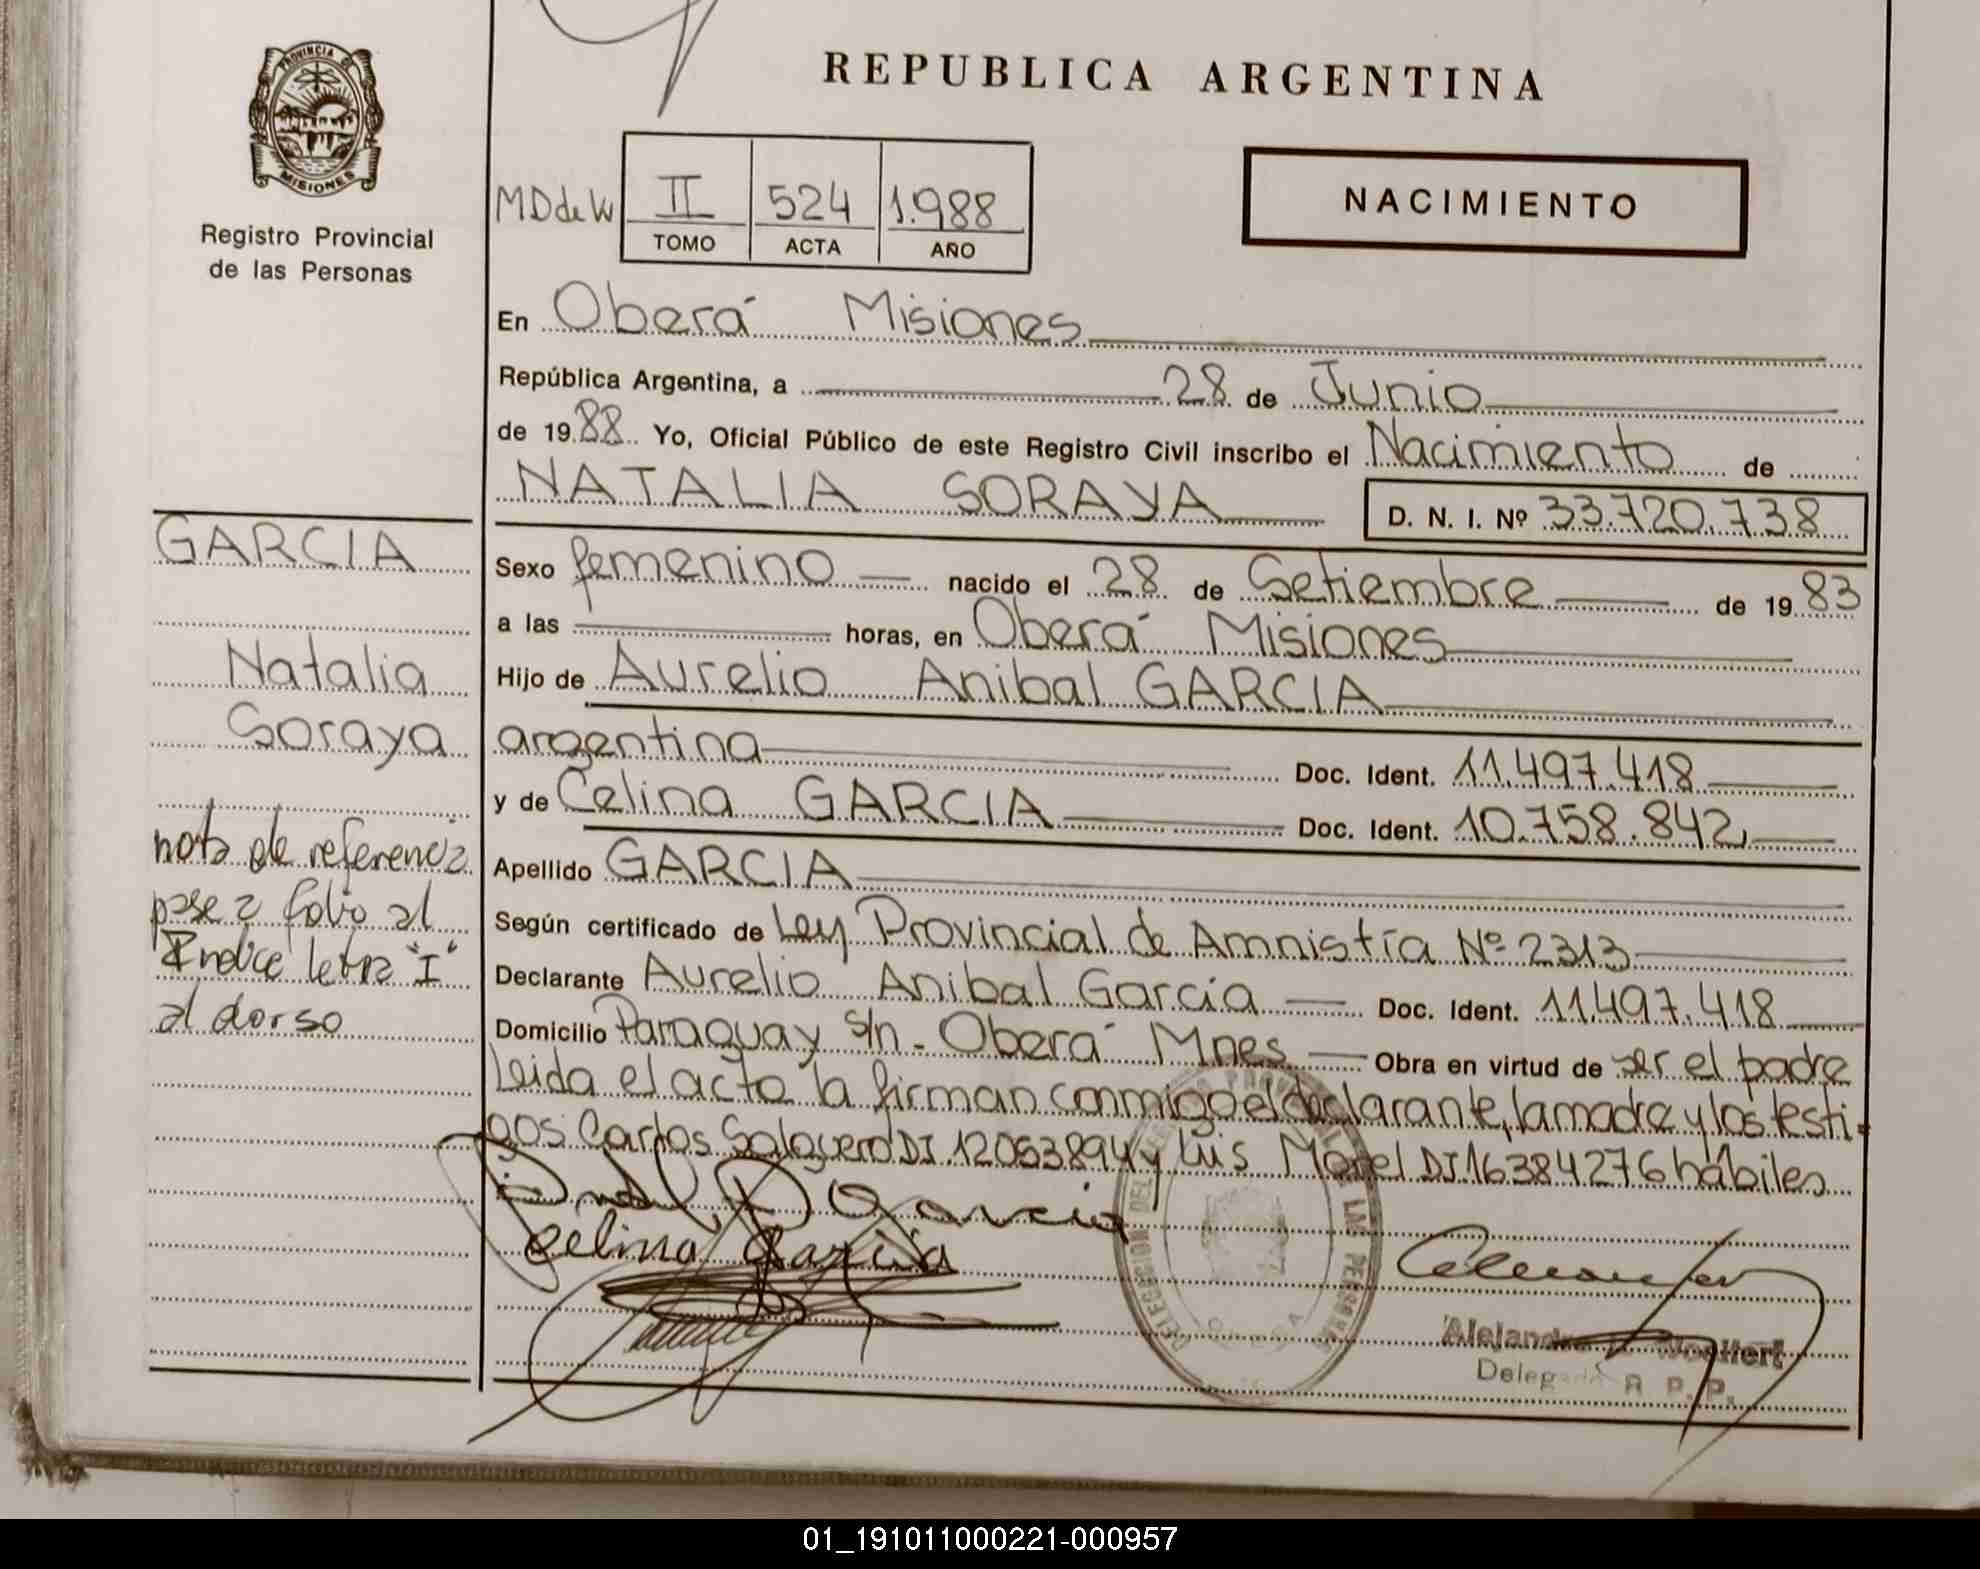 REPUBLICA ARGENTINA
PROVINCIA DE
MISIONES
Registro Provincial
de las Personas
MD de W
II 524 1.988
TOMO ACTA AÑO
NACIMIENTO
En Oberá Misiones
República Argentina, a 28 de Junio
de 19 88 Yo, Oficial Público de este Registro Civil inscribo el Nacimiento de
NATALIA SORAYA D. N. I. Nº 33.720.738
Sexo femenino nacido el 28 de Setiembre de 19 83
a las horas, en Oberá Misiones
Hijo de Aurelio Anibal GARCIA
argentina Doc. Ident. 11.497.418
y de Celina GARCIA Doc. Ident. 10.758.842
Apellido GARCIA
Según certificado de Ley Provincial de Amnistía Nº 2313
Declarante Aurelio Anibal Garcia Doc. Ident. 11.497.418
Domicilio Paraguay s/n - Oberá Mnes Obra en virtud de ser el padre
Leida el acta la firman conmigo el declarante, la madre y los testi-
gos Carlos Salguero DI 12063894 y Luis Morel DI 16384276 hábiles
Garcia
Celina Garcia
Delegado R. P. P.
GARCIA
Natalia
Soraya
nota de referencia
pase a folio al
Indice letra "I"
al dorso
01_191011000221-000957